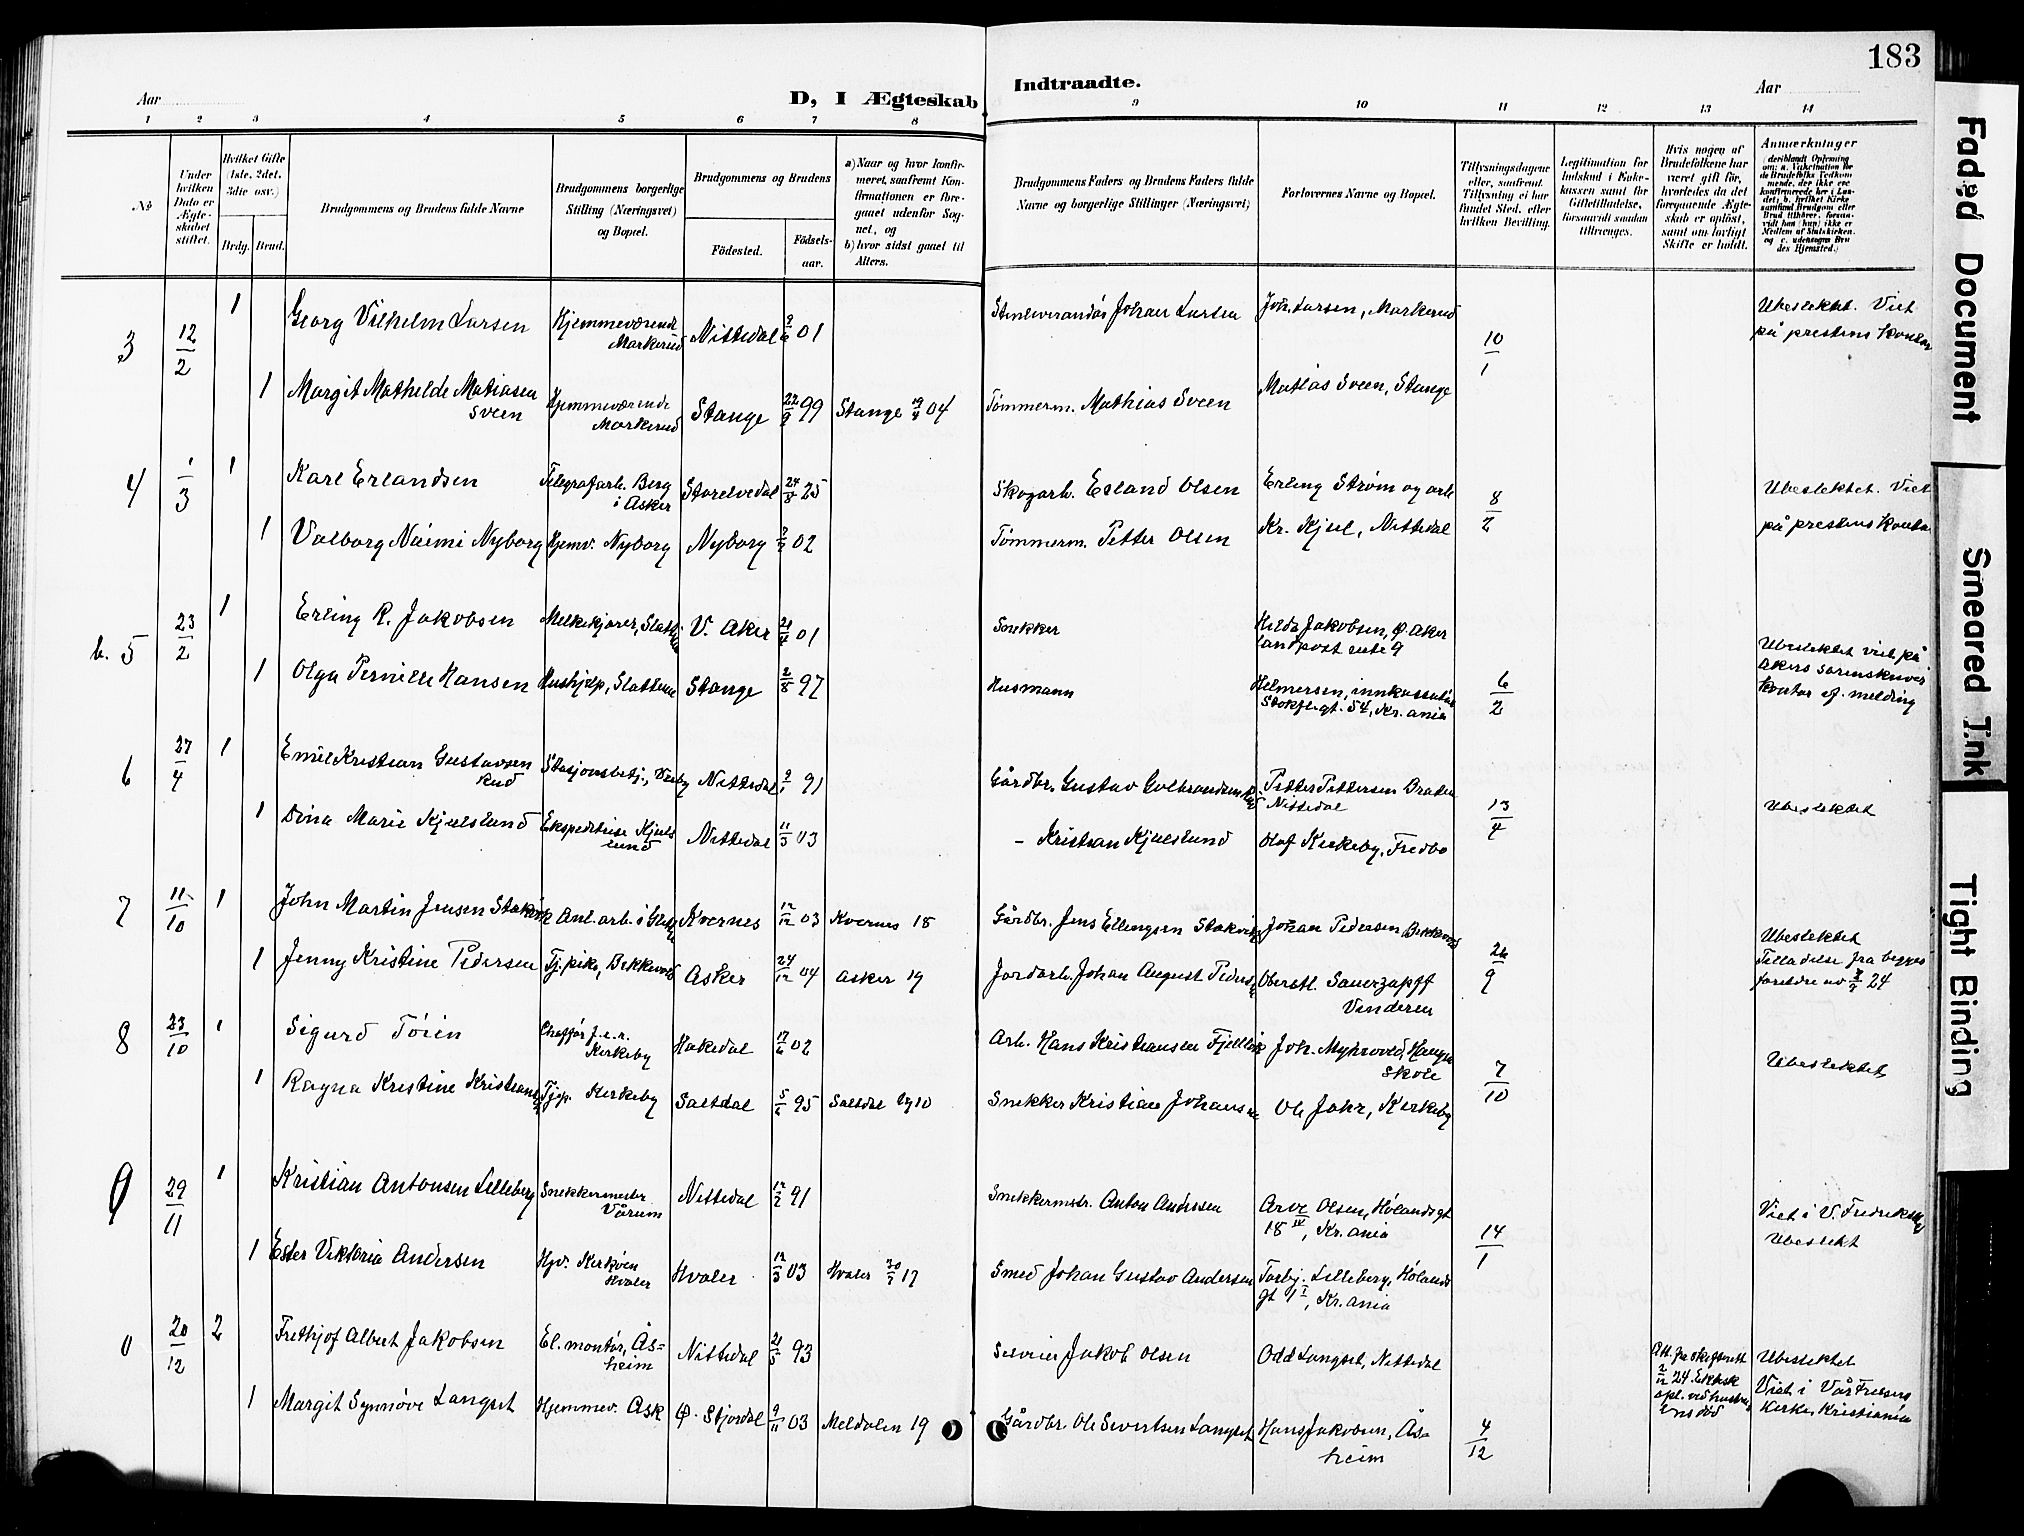 183
Aar
D, I Ægteskab Indtraadte.
Aar
1 2 3 4 5 6 7 8 9 10 11 12 13 14
No
Under hvilken Dato er Ægteskabet stiftet.
Hvilket Gifte (1ste, 2det, 3die osv.)
Brdg. Brud.
Brudgommens og Brudens fulde Navne
Brudgommens borgerlige Stilling (Næringsvei) og Bopæl.
Brudgommens og Brudens
Fødested. Fødselsaar.
a) Naar og hvor konfirmeret, saafremt Konfirmationen er foregaaet udenfor Sognet, og
b) hvor sidst gaaet til Alters.
Brudgommens Faders og Brudens Faders fulde Navne og borgerlige Stillinger (Næringsvei)
Forlovernes Navne og Bopæl.
Tillysningsdagene eller, saafremt Tillysning ei har fundet Sted, efter hvilken Bevilling.
Legitimation for Indskud i Enkekassen samt for Giftetilladelse, forsaavidt saadan tiltrænges.
Hvis nogen af Brudefolkene har været gift før, hvorledes da det foregaaende Ægteskab er opløst, samt om lovligt Skifte er holdt.
Anmærkninger
3 12/2 1 Georg Vilhelm Larsen Hjemmeværende Markerud Nittedal 01 Johan Larsen Joh. Larsen, Markerud 10/1 Ubeslektet. Viet på prestens kontor
1 Margit Mathilde Matiasen Sveen Hjemmeværende Markerud Stange 22/9 99 Stange 04 Tømmerm. Mathias Sveen Matias Sveen, Stange
4 1/3 1 Karl Erlandsen Telegrafarb. Berg i Asker Storelvedal 25 Skogarb. Erland Olsen Erling Strøm og arb. 8/2 Ubeslektet. Viet
1 Valborg Naimi Nyborg Hjemv. Nyborg Nyborg 02 Tømmerm. Petter Olsen Kr. Kjul, Nittedal på prestens kontor
b. 5 23/2 1 Erling R. Jakobsen Melkekjører, V. Aker 21/4 01 Snekker Hilda Jakobsen, Ø. Aker landpost rute 9 Ubeslektet viet på Akers sorenskriver kontor ef. melding
1 Olga Pernille Hansen Hushjelp, Slattum Stange 2/8 97 Husmann Helmersen, Kr.ania 6/2
6 27/4 1 Emil Kristian Gustavsen Rud Nittedal 91 Gårdbr. Gustav Petter Pettersen Nittedal 13/4 Ubeslektet
1 Dina Marie Kjulslund Ekspeditrise Kjulslund Nittedal 11/3 03 - Kristian Kjulslund Olaf Kirkeby, Fredbo
7 11/10 1 John Martin Jensen Stokvik Kvernes 12/12 03 Kvernes 18 Gårdbr. Jens Ellingsen Stokvik Johan Pedersen Bekkevold 26/9 Ubeslektet Tilladelse fra begges foreldre 24
1 Jenny Kristine Pedersen Tj.pike, Bekkevold Asker 24/12 04 Asker 19 Jordarb. Johan August Pedersen Oberstl. Sauerzapff Vinderen
8 23/10 1 Sigurd Tøien Kirkeby Hakedal 17/6 02 Arb. Hans Kristiansen Joh. Myhrvold, Haugen skole 7/10 Ubeslektet
1 Ragna Kristine Kristiansen Tjp. Kirkeby Saltdal 5/6 95 Saltdal 10 Snekker Kristian Johansen Ole Johr, Kirkeby
9 29/11 1 Kristian Antonsen Lilleberg Snekkermester Nittedal 12/2 91 Snekkermstr. Anton Andersen Olsen, Hølandsgt 18, Kr.ania 14/1 Viet i V. Fredrikstad Ubeslekt
1 Ester Viktoria Andersen Hjv. Kirkøen Hvaler Hvaler 12/3 03 Hvaler 17 Smed Johan Gustav Andersen Torbj. Lilleberg, Hølandsgt, Kr.ania
0 20/12 2 Frethjof Albert Jakobsen El. montør, Åsheim Nittedal 21/5 93 Jakob Olsen Odd Langset, Nittedal Ubeslektet Viet i Vår Frelsers kirke, Kristiania
1 Margit Synnøve Langset Hjemmev. Ask Ø. Stjørdal 9/11 03 Meldalen 19 Gårdbr. Ole Sivertsen Langset Hans Jakobsen, Åsheim 4/12
Faded Document
Smeared Ink
Tight Binding